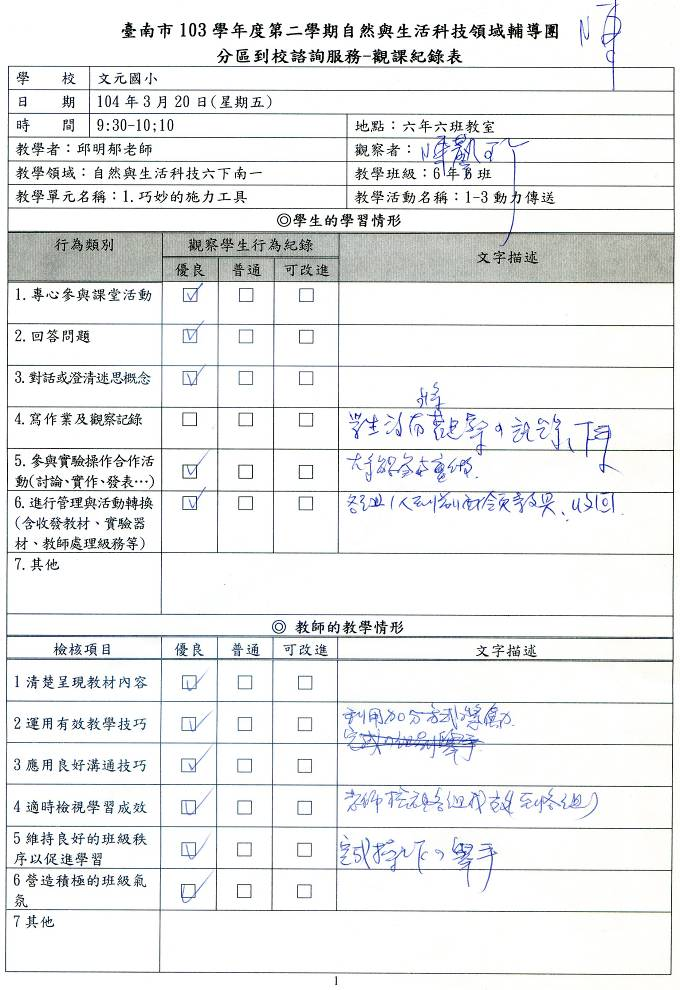 臺南市 103 學年度第二學期自然與生活科技領域輔導團
分區到校諮詢服務-觀課紀錄表
學 校 文元國小
日 期 104 年 3 月 20 日(星期五)
時 間 9:30-10;10 地點：六年六班教室
教學者：邱明郁老師 觀察者：陳
教學領域：自然與生活科技六下南一 教學班級：6 年 6 班
教學單元名稱：1.巧妙的施力工具 教學活動名稱：1-3 動力傳送
◎學生的學習情形
行為類別 觀察學生行為紀錄 文字描述
優良 普通 可改進
1.專心參與課堂活動 ☑ □ □
2.回答問題 ☑ □ □
3.對話或澄清迷思概念 ☑ □ □
4.寫作業及觀察記錄 □ □ □ 學生沒有
5.參與實驗操作合作活
動(討論、實作、發表…) ☑ □ □
6.進行管理與活動轉換 ☑ □ □ 各組1人到前面領教具、收回
(含收發教材、實驗器
材、教師處理級務等)
7.其他
◎ 教師的教學情形
檢核項目 優良 普通 可改進 文字描述
1 清楚呈現教材內容 ☑ □ □
2 運用有效教學技巧 ☑ □ □ 利用加分方式獎勵
3 應用良好溝通技巧 ☑ □ □
4 適時檢視學習成效 ☑ □ □ 老師檢視各組成效
5 維持良好的班級秩
序以促進學習 ☑ □ □ 舉手
6 營造積極的班級氣
氛 ☑ □ □
7 其他
1